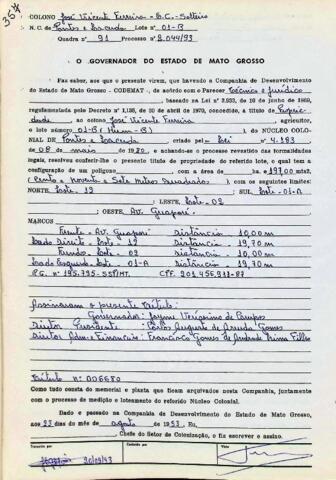 COLONO José Vicente Ferreira - B.C. - Solteiro
N. C. de Pontes e Lacerda Lote n° 01-B
Quadra n° 91 Processo n° 2.044/93
O GOVERNADOR DO ESTADO DE MATO GROSSO
Faz saber, aos que o presente virem, que havendo a Companhia de Desenvolvimento
do Estado de Mato Grosso - CODEMAT -, de acordo com o Parecer Técnico e Jurídico
, baseado na Lei n° 2.933, de 16 de junho de 1969,
regulamentada pelo Decreto n° 1.138, de 30 de abril de 1970, concedido, a título de
ao colono José Vicente Ferreira, agricultor,
o lote número 01-B (Hum-B) do NÚCLEO COLONIAL
de Pontes e Lacerda, criado pel Lei n° 4.183
de 08 de maio de 1970, e achando-se o processo revestido das formalidades
legais, resolveu conferir-lhe o presente título de propriedade do referido lote, o qual tem a
configuração de um polígono, com a área de 197,00 mts²
(Cento e Noventa e Sete Metros Quadrados) com os seguintes limites:
NORTE, Lote - 12; SUL, Lote - 01-A
; LESTE, Lote - 02
; OESTE, Av. Guaporé
MARCOS
Frente - Av. Guaporé Distância - 10,00m
Lado Direito - Lote - 12 Distância - 19,70m
Fundos - Lote - 02 Distância - 10,00m
Lado Esquerdo - Lote - 01-A Distância - 19,70m
R.G. n° 195.795-SSP/MT. CPF.
Assinaram o presente título:
Governador: Jayme Veríssimo de Campos
Diretor Presidente: Carlos Augusto de Arruda Gomes
Diretor Adm e Financeiro: Francisco Gomes de Andrade Lima Filho
Título n° 006680
Como tudo consta do memorial e planta que ficam arquivados nesta Companhia, juntamente
com o processo de medição e loteamento do referido Núcleo Colonial.
Dado e passado na Companhia de Desenvolvimento do Estado de Mato Grosso,
aos 23 dias do mês de agosto de 1993. Eu,
Chefe do Setor de Colonização, o fiz escrever e assino.
Transcrito em
Conferido por
Visto
20/09/93